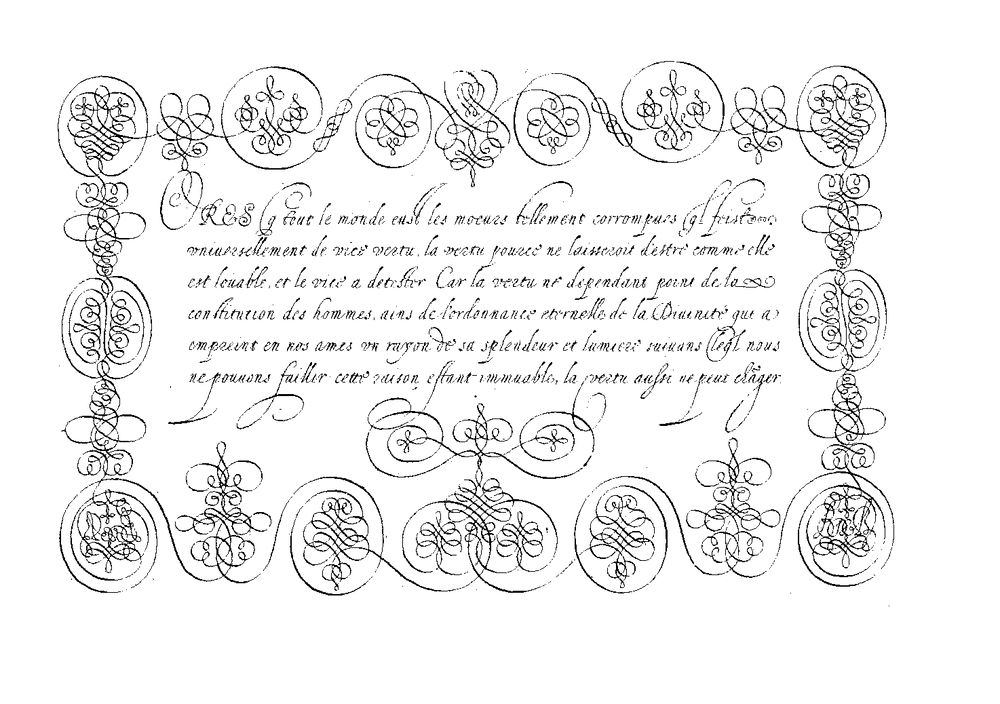 ORES q tout le monde eust les moeurs tellement corrompues ql feist
vniuersellement de vice vertu, la vertu pource ne laisseroit destre comme elle
est loüable, et le vice a detester Car la vertu ne dependant point de la
constitution des hommes, ains de l'ordonnance eternelle de la Diuinité qui a
empreint en nos ames vn rayon de sa splendeur et lumiere suiuans leql nous
ne pouuons faillir cette raison estant immuable, la vertu aussi ne peut chãger